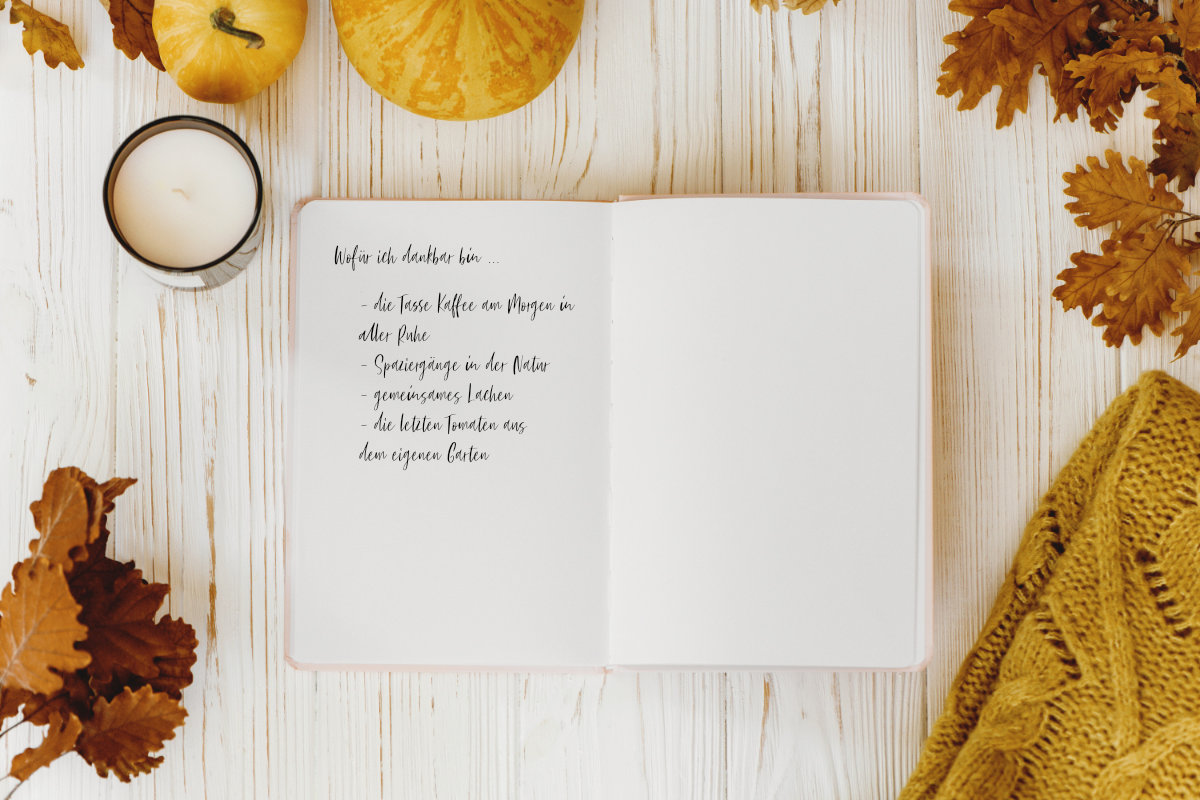 Wofür ich dankbar bin ...
- die Tasse Kaffee am Morgen in
aller Ruhe
- Spaziergänge in der Natur
- gemeinsames Lachen
- die letzten Tomaten aus
dem eigenen Garten